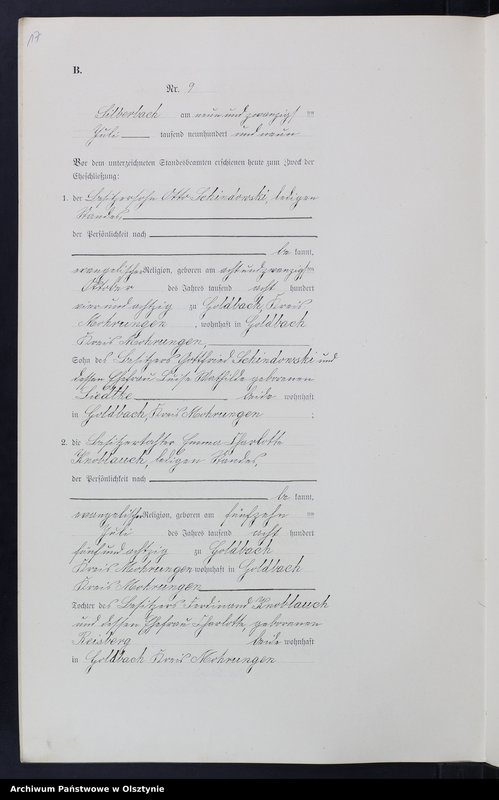 17
B.
Nr. 9
Silberbach am neun und zwanzig ten
Juli tausend neunhundert und neun
Vor dem unterzeichneten Standesbeamten erschienen heute zum Zweck der
Eheschließung:
1. der Besitzersohn Otto Schindowski, ledigen
Standes,
der Persönlichkeit nach
be kannt,
evangelischer Religion, geboren am acht und zwanzig ten
Oktober des Jahres tausend acht hundert
vier und achtzig zu Goldbach, Kreis
Mohrungen, wohnhaft in Goldbach
Kreis Mohrungen,
Sohn des Besitzers Gottfried Schindowski und
dessen Ehefrau Luise Mathilde geborenen
Liedtke beide wohnhaft
in Goldbach, Kreis Mohrungen ;
2. die Besitzertochter Emma Charlotte
Knoblauch, ledigen Standes,
der Persönlichkeit nach
be kannt,
evangelischer Religion, geboren am fünfzehn ten
Juli des Jahres tausend acht hundert
fünf und achtzig zu Goldbach
Kreis Mohrungen wohnhaft in Goldbach
Kreis Mohrungen
Tochter des Besitzers Ferdinand Knoblauch
und dessen Ehefrau Charlotte, geborenen
Reisberg beide wohnhaft
in Goldbach Kreis Mohrungen
Archiwum Państwowe w Olsztynie